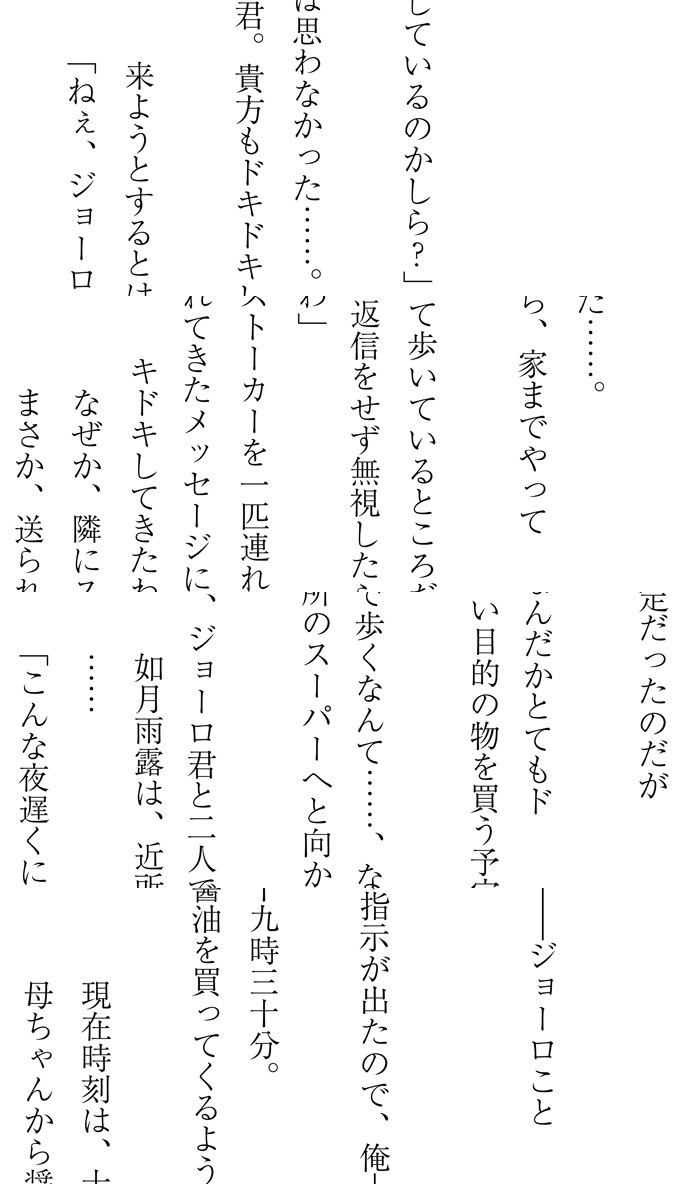 しているのかしら？」
は思わなかった……。
君。貴方もドキドキし
来ようとするとは
「ねぇ、ジョーロ
た……。
ら、家までやって
て歩いているところだ
返信をせず無視した
わ」
ストーカーを一匹連れ
れてきたメッセージに、
キドキしてきたわ
なぜか、隣にス
まさか、送られ
定だったのだが
なんだかとてもド
い目的の物を買う予定
で歩くなんて……、な
所のスーパーへと向か
ジョーロ君と二人で
如月雨露は、近所
……
「こんな夜遅くに
――ジョーロこと
指示が出たので、俺―
九時三十分。
醤油を買ってくるよう
現在時刻は、十
母ちゃんから醤